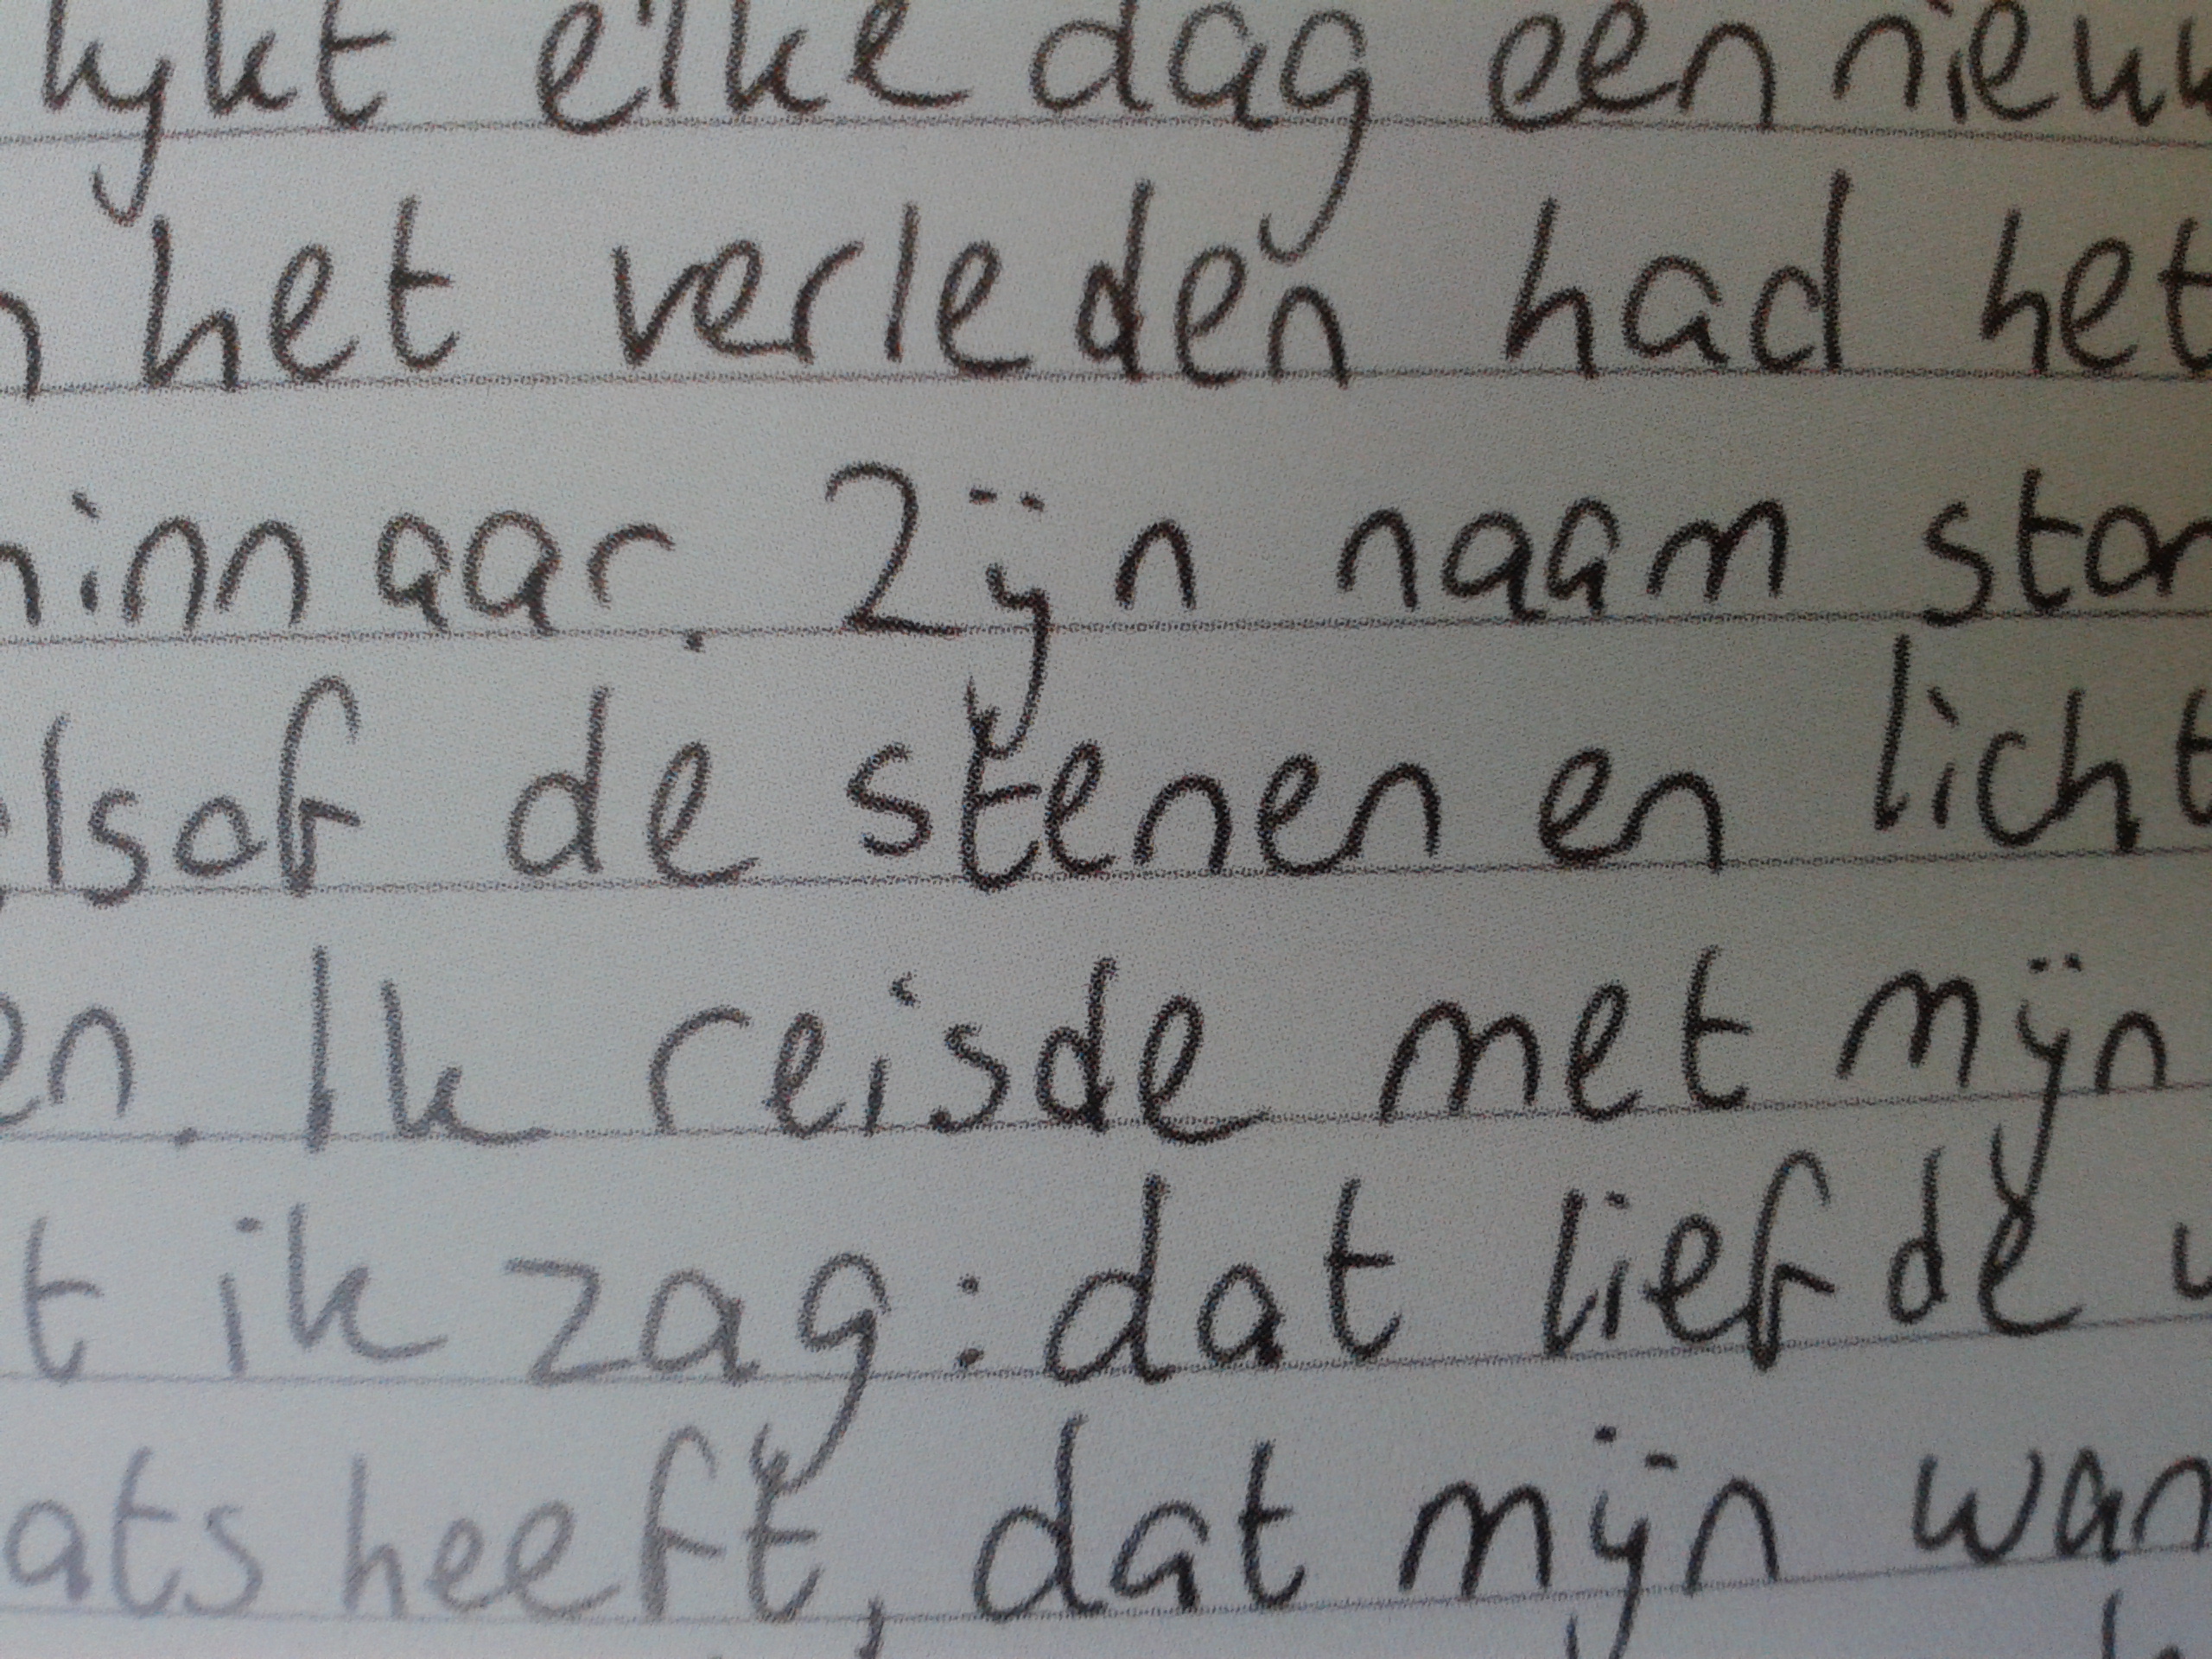 lijkt elke dag een nieuw
n het verleden had het
ninnaar. Zijn naam ston
elsof de stenen en licht
en. Ik reisde met mijn
t ik zag: dat liefde
ats heeft, dat mijn wan